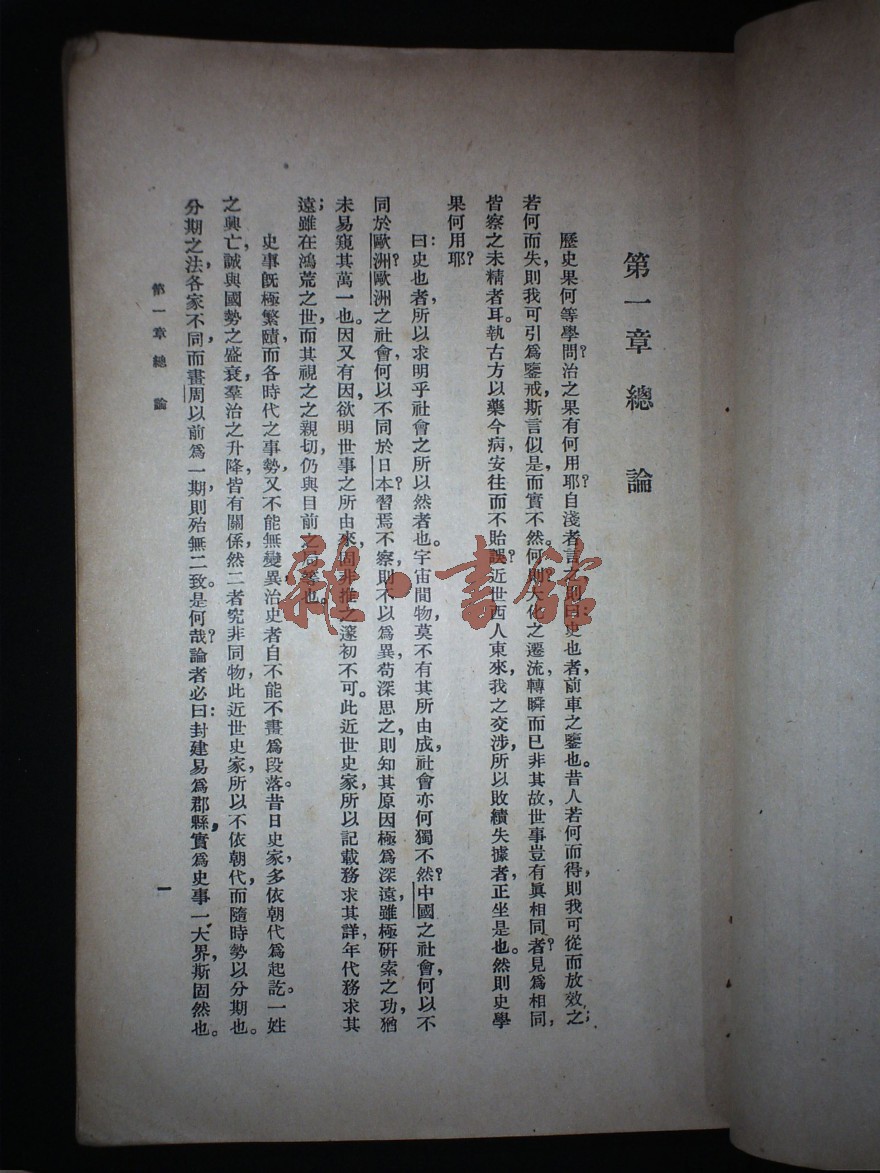 第一章 總論
歷史果何等學問?治之果有何用耶?自淺者言之則曰:史也者,前車之鑒也。昔人若何而得,則我可從而放效之;
若何而失,則我可引爲鑒戒,斯言似是,而實不然。何則?大化之遷流,轉瞬而已非其故,世事豈有眞相同者?見爲相同,
皆察之未精者耳。執古方以藥今病,安往而不貽誤?近世西人東來,我之交涉,所以敗績失據者,正坐是也。然則史學
果何用耶?
曰:史也者,所以求明乎社會之所以然者也。宇宙間物,莫不有其所由成,社會亦何獨不然?中國之社會,何以不
同於歐洲?歐洲之社會,何以不同於日本?習焉不察,則不以爲異,苟深思之,則知其原因極爲深遠,雖極研索之功,猶
未易窺其萬一也。因又有因,欲明世事之所由來,固非推之邃初不可。此近世史家,所以記載務求其詳,年代務求其
遠;雖在鴻荒之世,而其視之之親切,仍與目前之局等也。
史事旣極繁賾,而各時代之事勢,又不能無變異,治史者自不能不畫爲段落。昔日史家,多依朝代爲起訖。一姓
之興亡,誠與國勢之盛衰,羣治之升降,皆有關係,然二者究非同物,此近世史家,所以不依朝代而隨時勢以分期也。
分期之法,各家不同,而畫周以前爲一期,則殆無二致。是何哉?論者必曰:封建易爲郡縣,實爲史事一大界,斯固然也。
第一章 總論
一
雜·書館